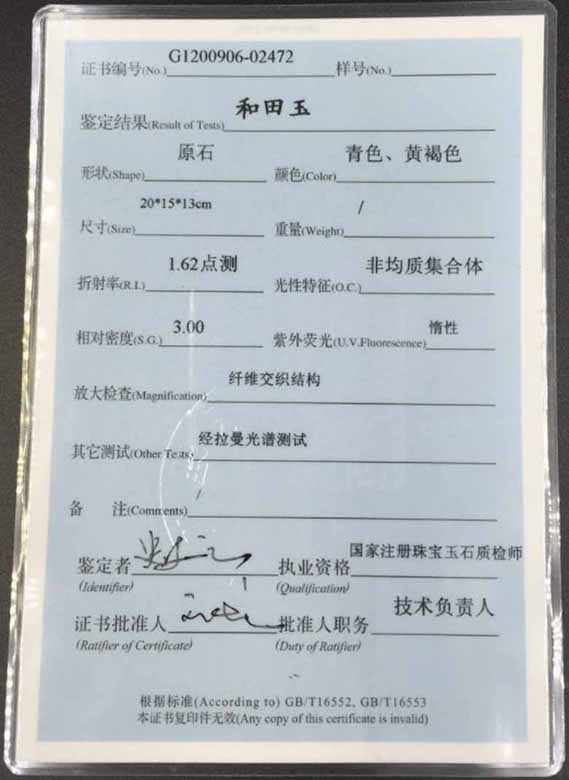 证书编号(No.) G1200906-02472 样号(No.)
鉴定结果(Result of Tests) 和田玉
形状(Shape) 原石 颜色(Color) 青色、黄褐色
尺寸(Size) 20*15*13cm 重量(Weight) /
折射率(R.I.) 1.62点测 光性特征(O.C.) 非均质集合体
相对密度(S.G.) 3.00 紫外荧光(U.V.Fluorescence) 惰性
放大检查(Magnification) 纤维交织结构
其它测试(Other Tests) 经拉曼光谱测试
备 注(Comments) /
鉴定者 执业资格 国家注册珠宝玉石质检师
(Identifier) (Qualification)
证书批准人 批准人职务 技术负责人
(Ratifier of Certificate) (Duty of Ratifier)
根据标准(According to) GB/T16552, GB/T16553
本证书复印件无效(Any copy of this certificate is invalid)